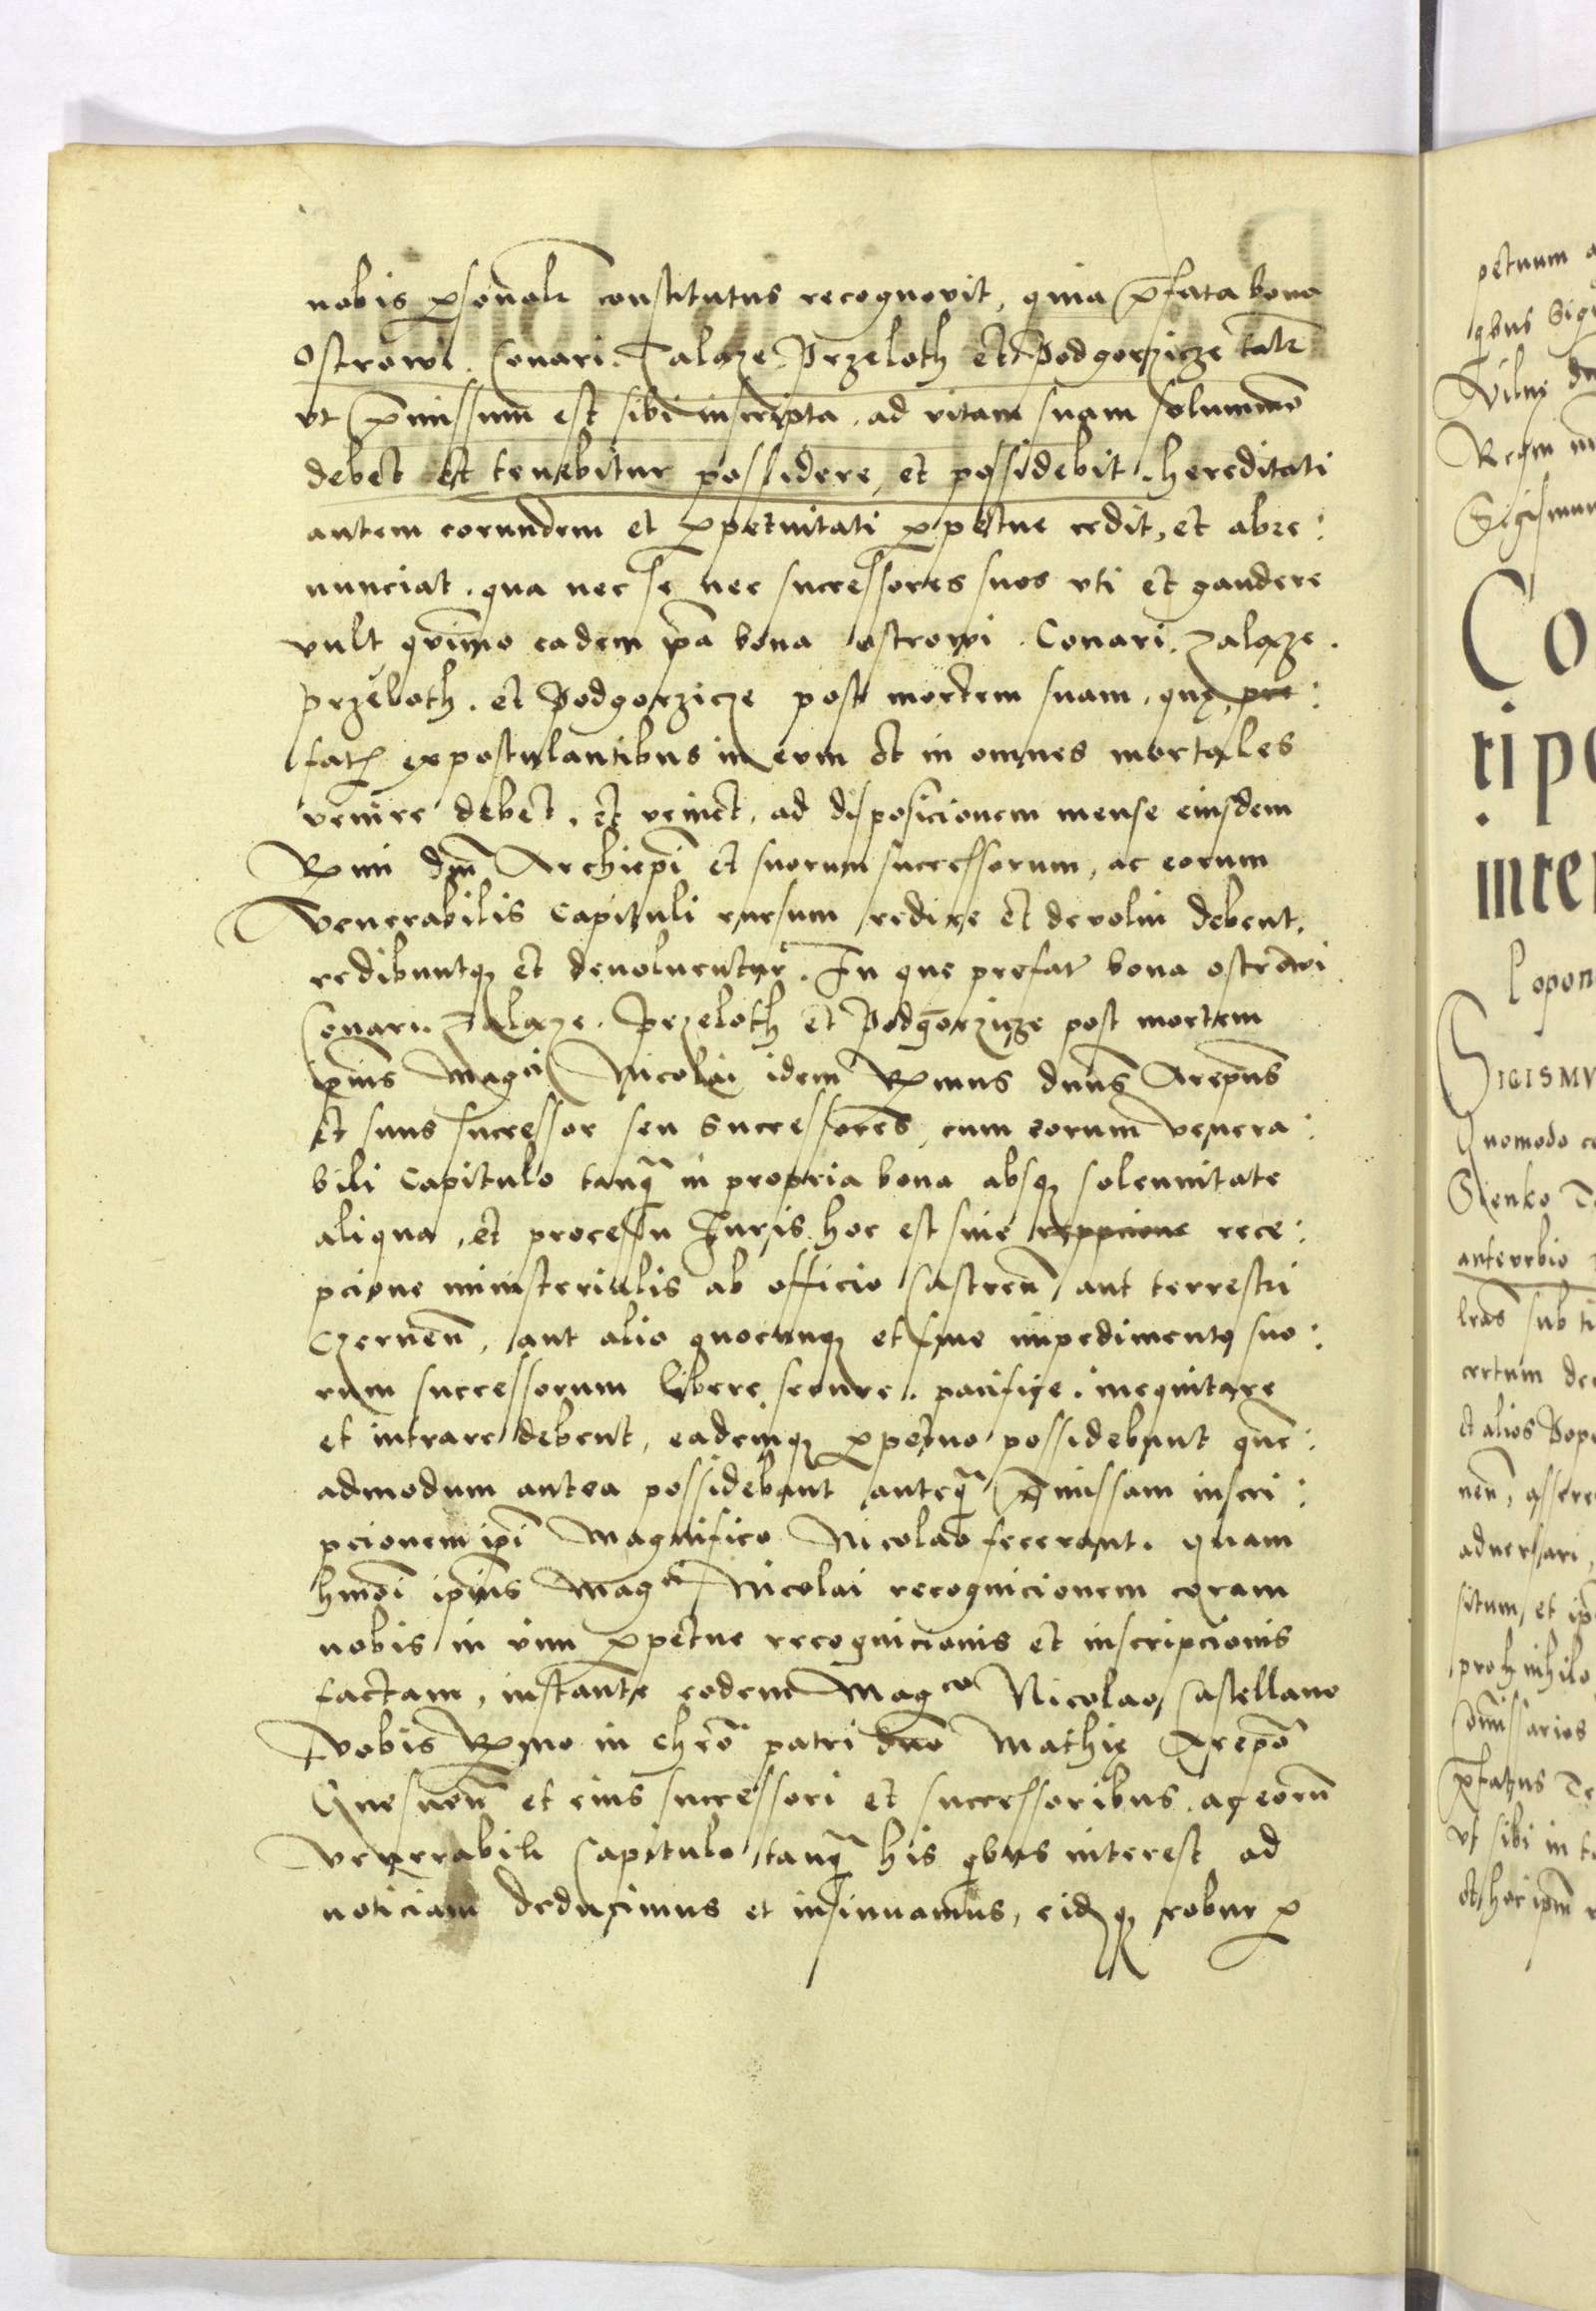 nobis p̱sonalr constitutus recognovit, quia p̄fata bona
Ostrowi. Conari. Zalaze. Przeloth et Podgorzicze talr
vt p̄missum est sibi inscripta, ad vitam suam solummo
debet et tenebitur possidere, et possidebit. hereditati
autem eorundem et p̱petuitati p̱petue cedit, et abre:
nunciat. qua nec se nec successores suos vti et gaudere
vult qvīmo eadem ip̄a bona ostrowi. Conari. Zalaze.
przeloth. et Podgorzicze post mortem suam, quę, pre:
fatꝭ expostulantibus in eum et in omnes mortales
venire debet, et veniet, ad disposicionem mense eiusdem
Rmi dn̄i Archiep̄i et suorum successorum, ac eorum
Venerabilis Capituli rursum redire et devolui debent,
redibuntqꝫ et devoluentur̄. In que prefat bona ostrowi
Conari. Zalaze. Przeloth et Podgorzicze post mortem
ip̄ius Magci Nicolai idem Rmus dnn̄s Arep̄us
et suus successor seu Successores, cum eorum venera:
bili Capitulo tanqꝫ in propria bona absqꝫ solennitate
aliqua, et processu Juris. hoc est sine reppcione rece:
pcione ministerialis ab officio Castren̄, aut terrestri
Czernen̄, aut alio quocunqꝫ et sine impedimento suo:
rum successorum libere, secure. pacifice. inequitare
et intrare debent, eademqꝫ p̱petuo possidebunt quē:
admodum antea possidebant anteqꝫ p̄missam inscri:
pcionem ip̄i Magnifico Nicolao fecerant. quam
hm̄oi ip̄ius Magci Nicolai recognicionem coram
nobis in vim p̱petue recognicionis et inscripcionis
factam, instante eodem Magco Nicolao Castellano
Vobis Rmo in chr̄o patri dn̄o Mathię Arep̄o
Gnesnen̄ et eius successori et successoribus. ac eorū
venerabili Capitulo tanqꝫ his qbus interest ad
noticiam deducimus et insinuamus, eidqꝫ robur p̱
petuum
qbus Sig
Vilnę
Regni
Sigismun
Co
ripo
inter
Popon
SIGISMV
Quomodo
Sienko
antevrbio
lrās sub
certum
et alios Pop
nen̄, assere
adversari
situm, et ip̄
proh nihilo
Com̄issarios
p̄fatus
vt sibi in
et hoc ipm̄